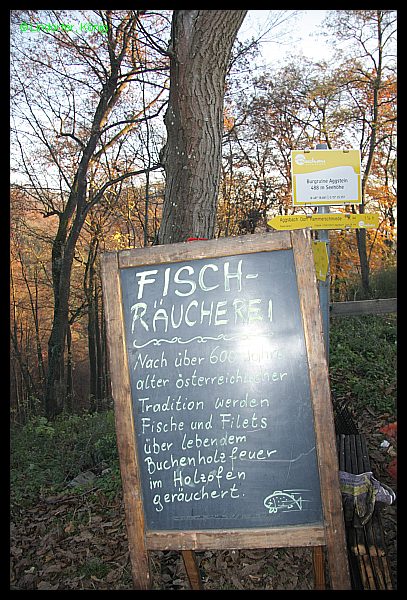 FISCH-
RÄUCHEREI
Nach über 600 Jahre
alter österreichischer
Tradition werden
Fische und Filets
über lebendem
Buchenholzfeuer
im Holzöfen
geräuchert.
Burgruine Aggstein
488 m Seehöhe